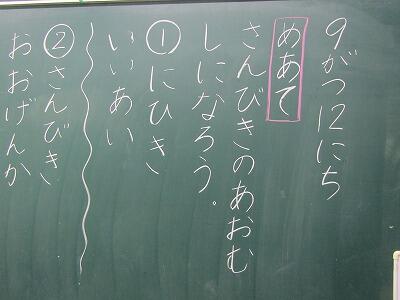 9がつ12にち
めあて
さんびきのあおむ
しになろう。
①にひき
いいあい
②さんびき
おおげんか